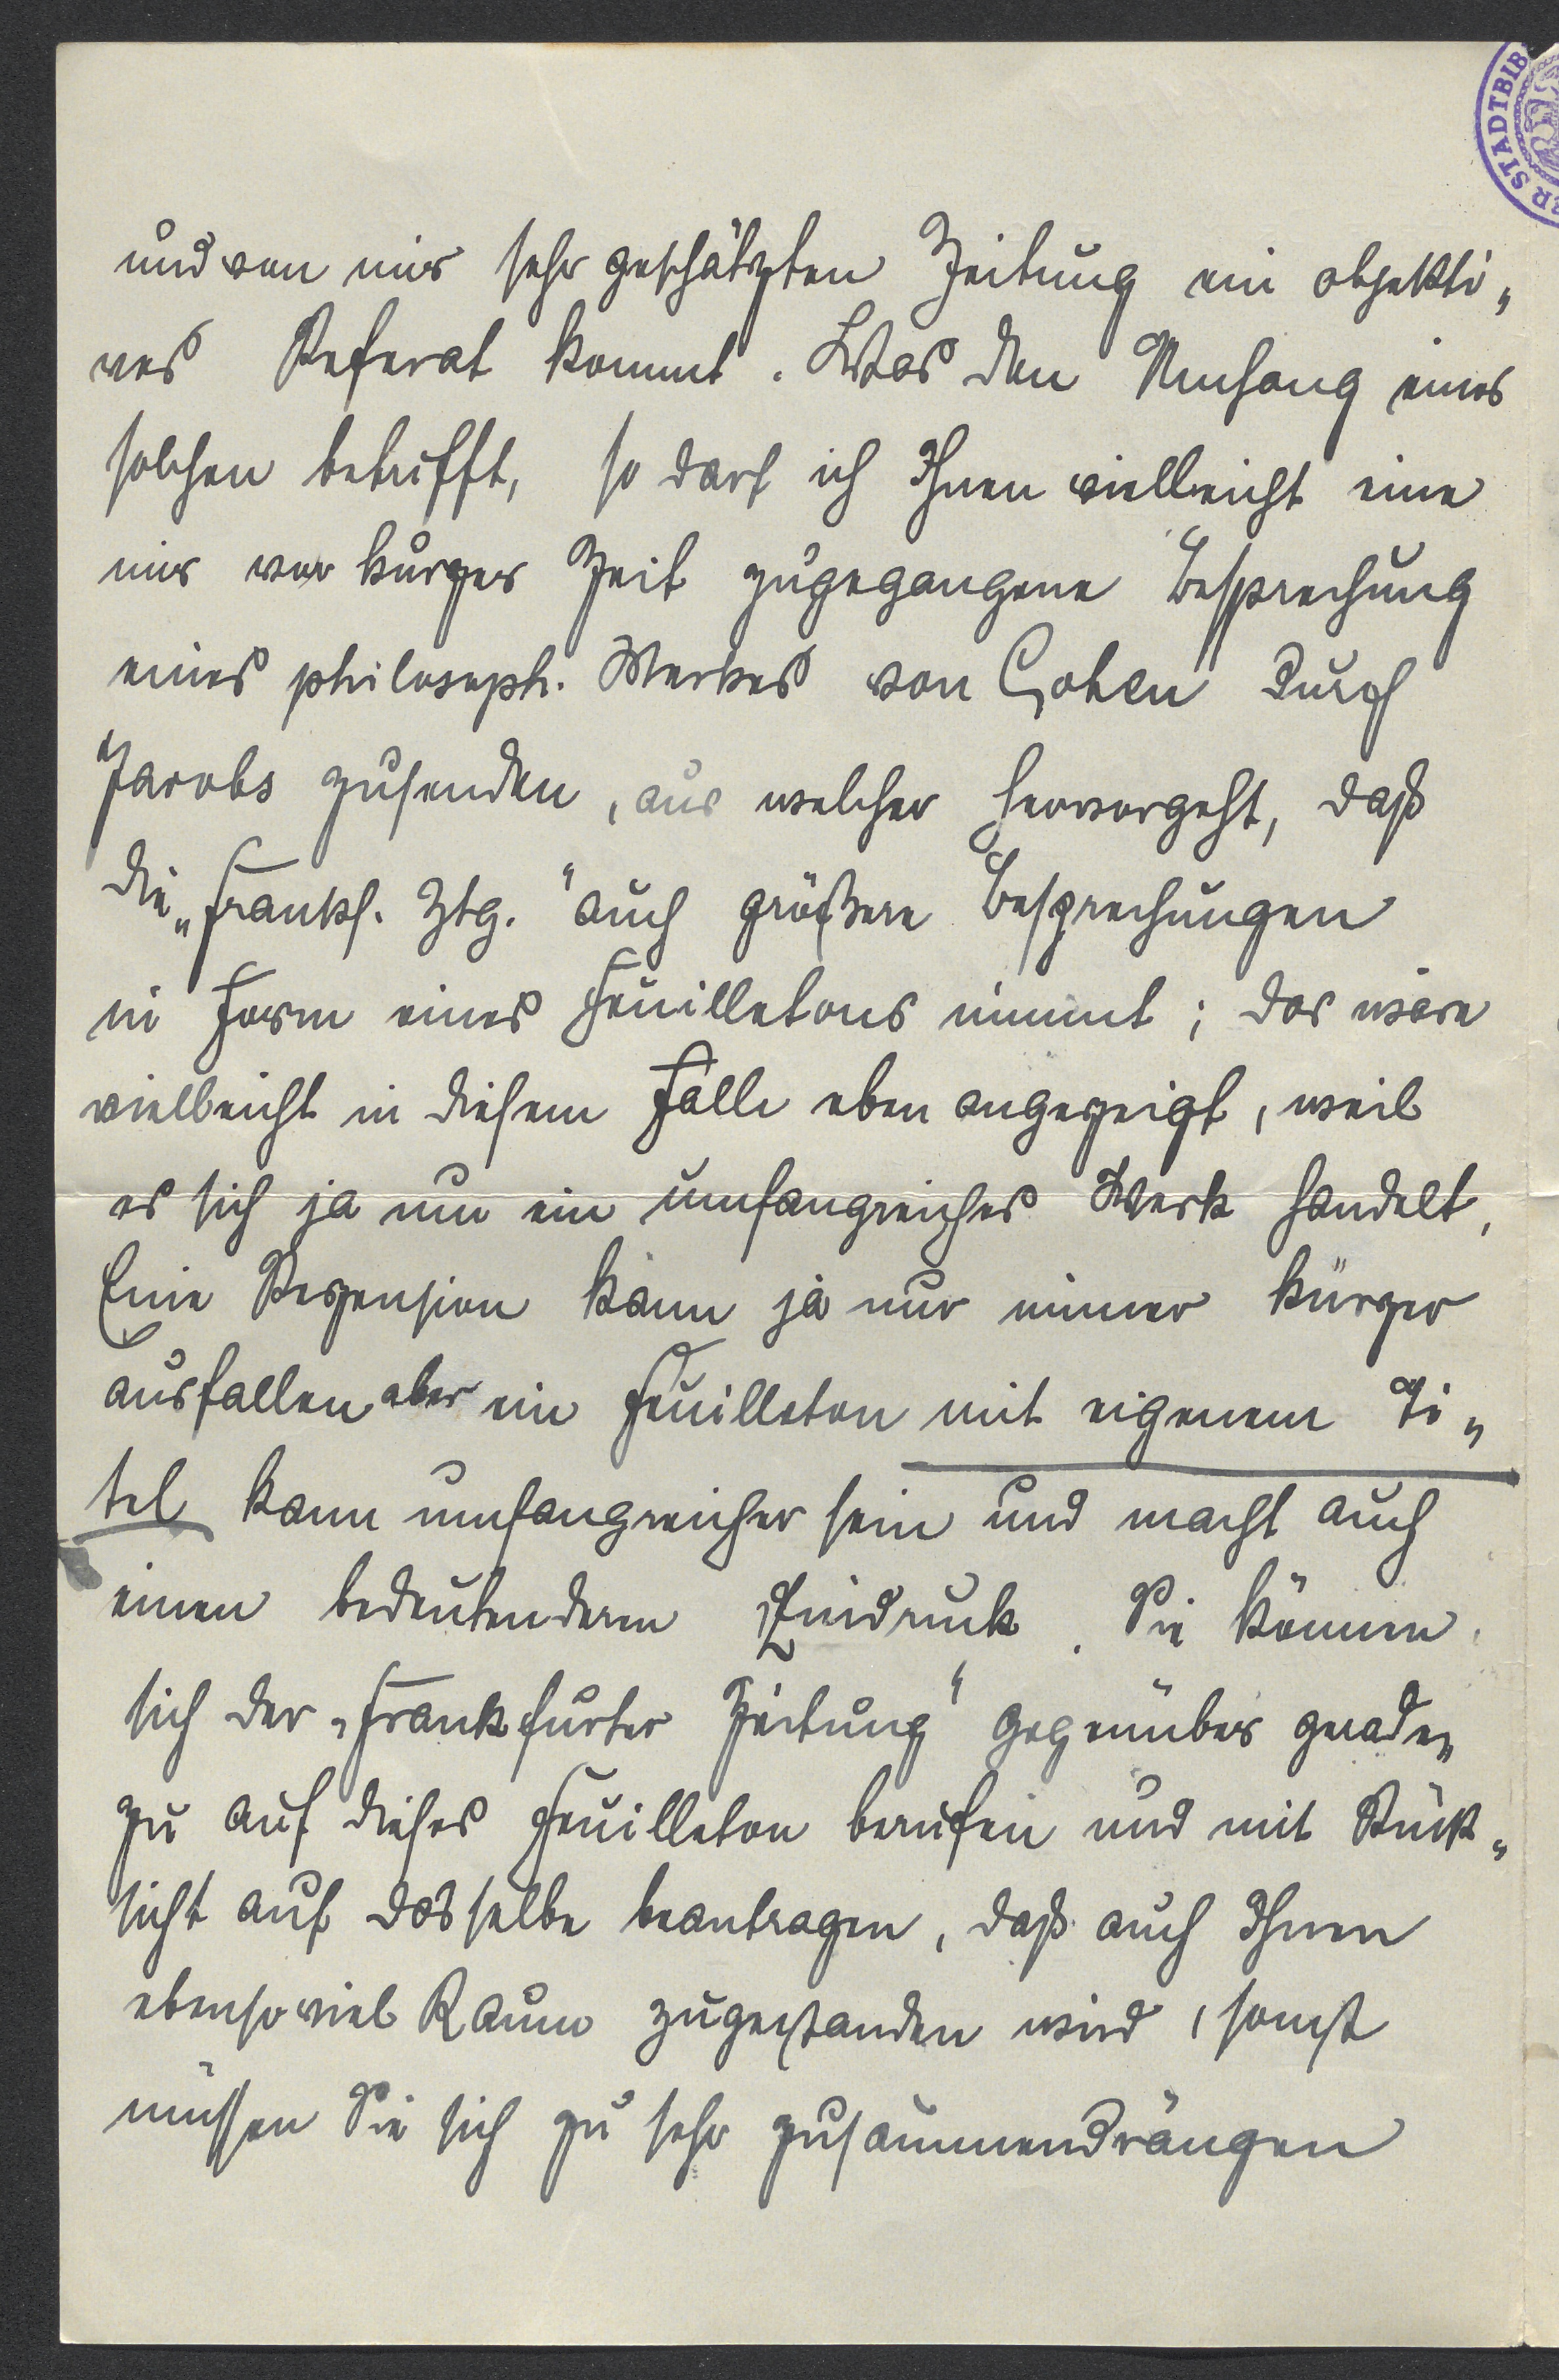 RR STADTBIB
und von mir sehr geschätzten Zeitung ein objekti„
ves Referat kommt. Was den Umfang eines
solchen betrifft, so darf ich Ihnen vielleicht eine
mir vor kurzer Zeit zugegangene Besprechung
eines philosoph. Werkes von Cohen durch
Jacobs zusenden, aus welcher hervorgeht, daß
die „Frankf. Ztg." auch größere Besprechungen
in Form eines Feuilletons nimmt; das wäre
vielleicht in diesem Falle eben angezeigt, weil
es sich ja um ein umfangreiches Werk handelt,
Eine Rezension kann ja nur immer kürzer
ausfallen aber ein Feuilleton mit eigenem Ti„
tel kann umfangreicher sein und macht auch
einen bedeutenderen Eindruck. Sie können
sich der „Frankfurter Zeitung" gegenüber gerade„
zu auf dieses Feuilleton berufen und mit Rück„
sicht auf dasselbe beantragen, daß auch Ihnen
ebensoviel Raum zugestanden wird, sonst
müssen Sie sich zu sehr zusammendrängen